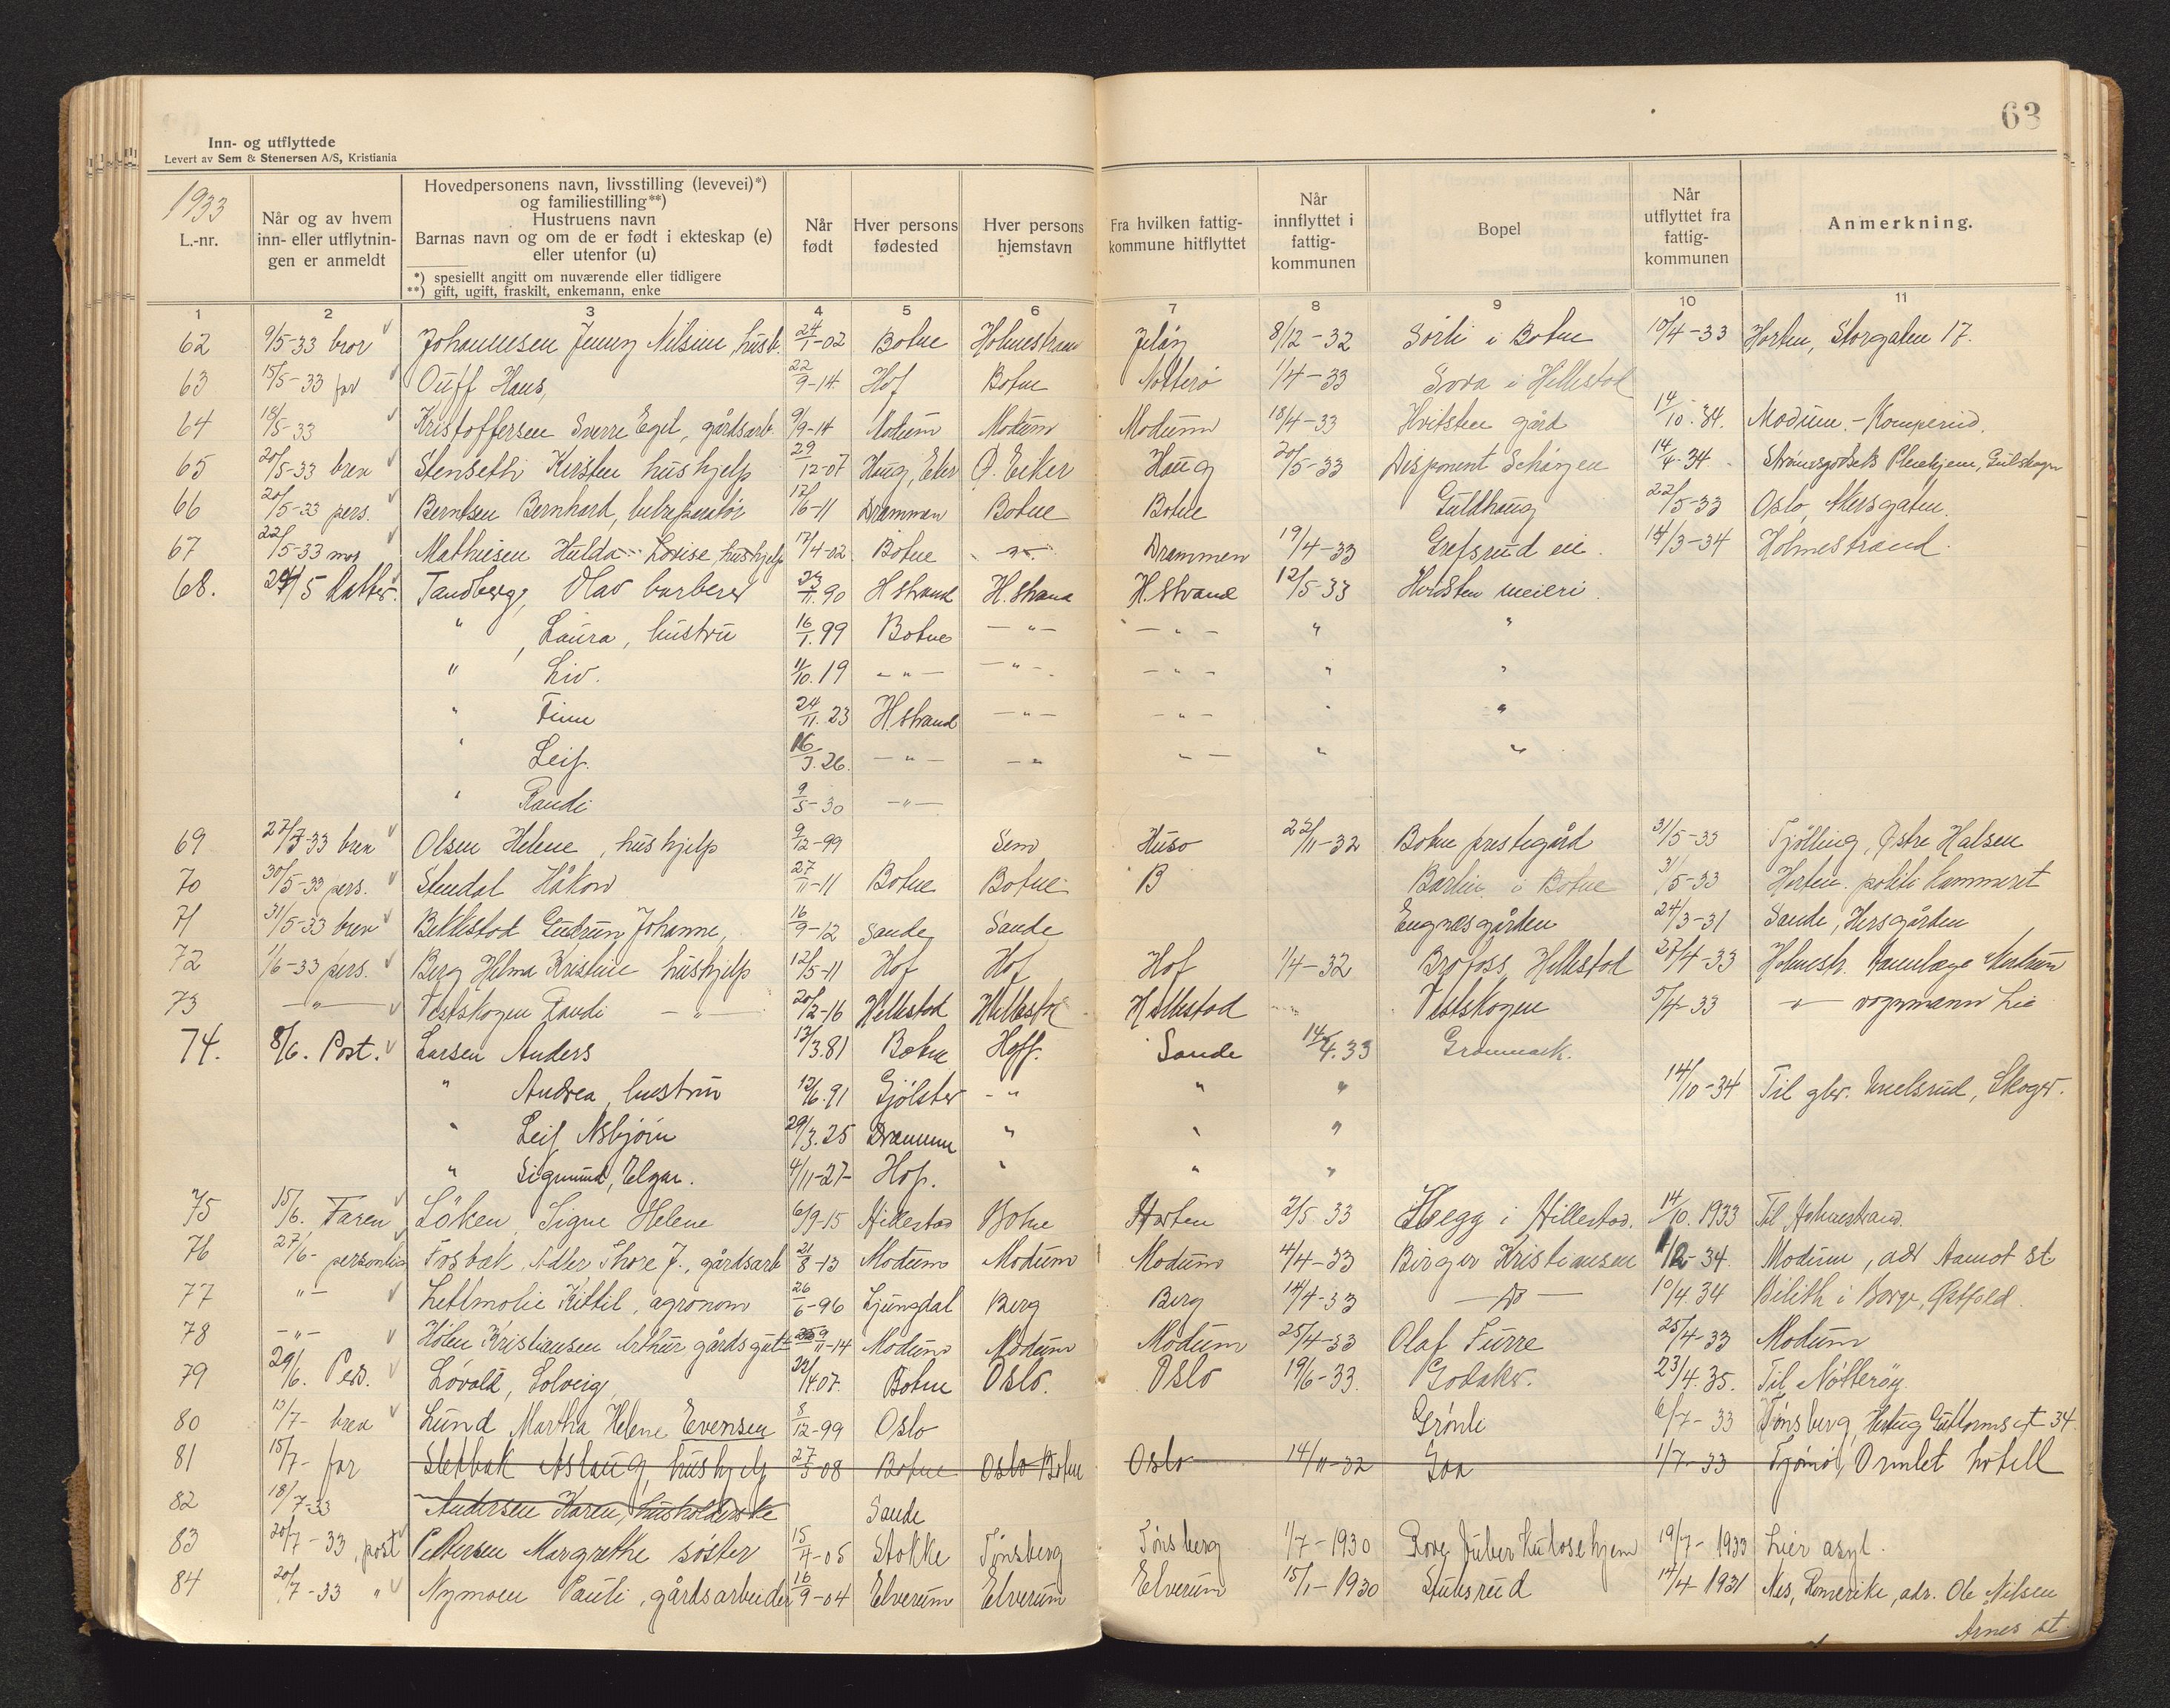 63
Inn- og utflyttede
Levert av Sem & Stenersen A/S, Kristiania
1933
L.-nr.
Når og av hvem inn- eller utflytnin-gen er anmeldt
Hovedpersonens navn, livsstilling (levevei)*) og familiestilling**)
Hustruens navn
Barnas navn og om de er født i ekteskap (e) eller utenfor (u)
*) spesiellt angitt om nuværende eller tidligere
**) gift, ugift, fraskilt, enkemann, enke
Når født
Hver persons fødested
Hver persons hjemstavn
Fra hvilken fattig-kommune hitflyttet
Når innflyttet i fattig-kommunen
Bopel
Når utflyttet fra fattig-kommunen
Anmerkning.
1 2 3 4 5 6 7 8 9 10 11
62 9/5-33 bror Johannesen Jenny Nilsine, hush. 24/1-02 Botne Holmestrand Jeløy 8/12-32 Sørli i Botne 10/4-33 Horten, Storgaten 17.
63 15/5-33 far Ouff Hans, 22/9-14 Hof Botne Nøtterø 1/4-33 i Hillestad
64 18/5-33 Kristoffersen Sverre Egil, gårdsarb. 9/9-14 Modum Modum Modum 18/4-33 Hvitsten gård 14/10-34. Modum.-Komperud.
65 20/5-33 brev Stenseth Kirsten hushjelp 29/12-07 Haug, Eker Ø. Eiker Haug 20/5-33 Disponent 14/4-34. Strømsgodsets Pleiehjem, Gulskogen
66 20/5-33 pers. Berntsen Bernhard, 12/6-11 Drammen Botne Botne Guldhaug 22/5-33 Oslo, Akersgaten.
67 22/5-33 mor Mathiesen Hulda Lovise hushjelp 17/4-02 Botne -"- Drammen 19/4-33 Grefsrud eie. 14/3-34 Holmestrand.
68. 24/5 Tandberg, Olav barberer 23/11.90 H.strand H.strand H.strand 12/5-33 Hvidsten meieri.
" , Laura, hustru 16/1.99 Botne -"- -"- " "
" Liv. 11/10.19 -"- -"- -"- " "
" Finn 24/11.23 H.strand -"- -"- " "
" Leif. 16/3.26. -"- -"- "- " "
" Randi 9/5-30 -"-
69 27/5-33 brev Olsen Helene, hushjelp 9/12-99 Sem Husø 22/11-32 Botne prestegård 31/5-33 Tjølling, Østre Halsen
70 30/5-33 pers. Stendal Håkon 27/11-11 Botne Botne B i Botne 31/5-33 Horten. politi kammeret
71 31/5-33 brev Bekkestad Gudrun Johanne, 16/9-12 Sande Sande Engnesgården 24/3-31 Sande, Hersgården
72 1/6-33 pers. Berg Helma Kristine hushjelp 12/5-11 Hof Hof Hof 1/4-32 Brofoss, Hillestad 27/4-33 Holmestr.
73 -"- Vestskogen Randi -"- 20/2-16 Hillestad Hillestad Hillestad Vestskogen 5/4-33 -"- vognmann Lie
74. 8/6. Post. Larsen Anders 13/3.81 Botne Hoff. Sande 14/4.33
" Andrea, hustru 12/6.91 Gjølster -"- " " 14/10-34 Til gbr. Skoger.
" Leif Asbjørn 29/3.25 Drammen " " "
" Sigmund, Elgar. 4/11-27- Hof. " " "
75 15/6. Faren Løken, Signe Helene 6/9-15 Hillestad Botne Horten 2/5 33 Hegg i Hillestad. 14/10. 1933 Til Holmestrand.
76 27/6- personlig Fosbak, Adler Thore J., gårdsarb 21/8-13 Modum Modum Modum 4/4-33 Birger Kristiansen 1/2-34. Modum, adr Aamot st
77 -"- Lettmolie Kittil, agronom 26/6-96 Ljungdal Berg Berg 14/4-33 -"- 10/4.34 i Borge, Østfold.
78 -"- Hølen Kristiansen Arthur gårdsgutt 9/11-14 Modum Modum Modum 25/4-33 Olaf Furre 25/4-33 Modum
79 29/6. Pers. Løvald, Solveig, 22/4.07. Botne Oslo. Oslo 19/6-33. Godaker. 23/4.35. Til Nøtterøy.
80 13/7- brev Lund Martha Helene Evensen 8/12-99 Oslo Grønli 6/7-33 Tønsberg, Hertug Guttormsgt 34.
81 15/7- far Sletbak Aslaug, hushjelp 27/5-08 Botne Oslo Botne Oslo 14/11-32 Goa 1/7-33 Tjømø, Ormlet hotell
82 18/7-33 Andersen Karen, husholderske Sande
83 20/7-33, post Pettersen Margrethe søster 15/4-05 Stokke Tønsberg Tønsberg 1/7-1930 Rove Tuberkulosehjem 19/7-1933 Lier asyl.
84 20/7-33 " Nymoen Pauli, gårdsarbeider 16/9-04 Elverum Elverum Elverum 15/1-1930 Stubsrud 14/4 1931 Nes, Romerike, adr. Ole Nilsen
Arnes st